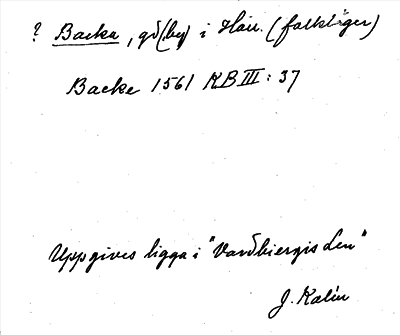 ? Backa, gd (by) i Hall. (folkliger)
Backe 1561 KB III: 37
Uppgives ligga i "Vardbiergis Len"
J. Kalén